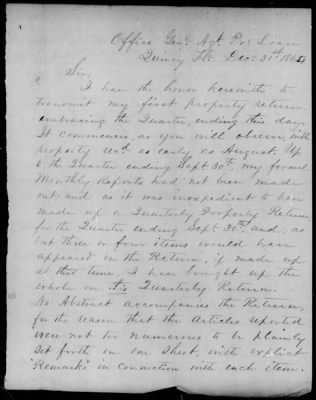 Office Genl. Agt. Po: Loan
Quincy Fla. Dec. 31st 1865
Sir,
I have the honor herewith to
transmit my first property return,
embracing the Quarter, ending this day.
It commences, as you will observe, with
property recd. as early as August. Up
to the Quarter ending Sept. 30th, my formal
Monthly Reports had not been made
out, and as it was inexpedient to have
made up a Quarterly Property Return,
for the Quarter ending Sept 30th and, as
but three or four items would have
appeared on the Return, if made up
at that time, I have brought up the
whole on this Quarterly Return.
No Abstract accompanies the Return,
for the reason that the articles reported
were not too numerous to be plainly
set forth on one sheet, with explicit
"Remarks" in connection with each item.